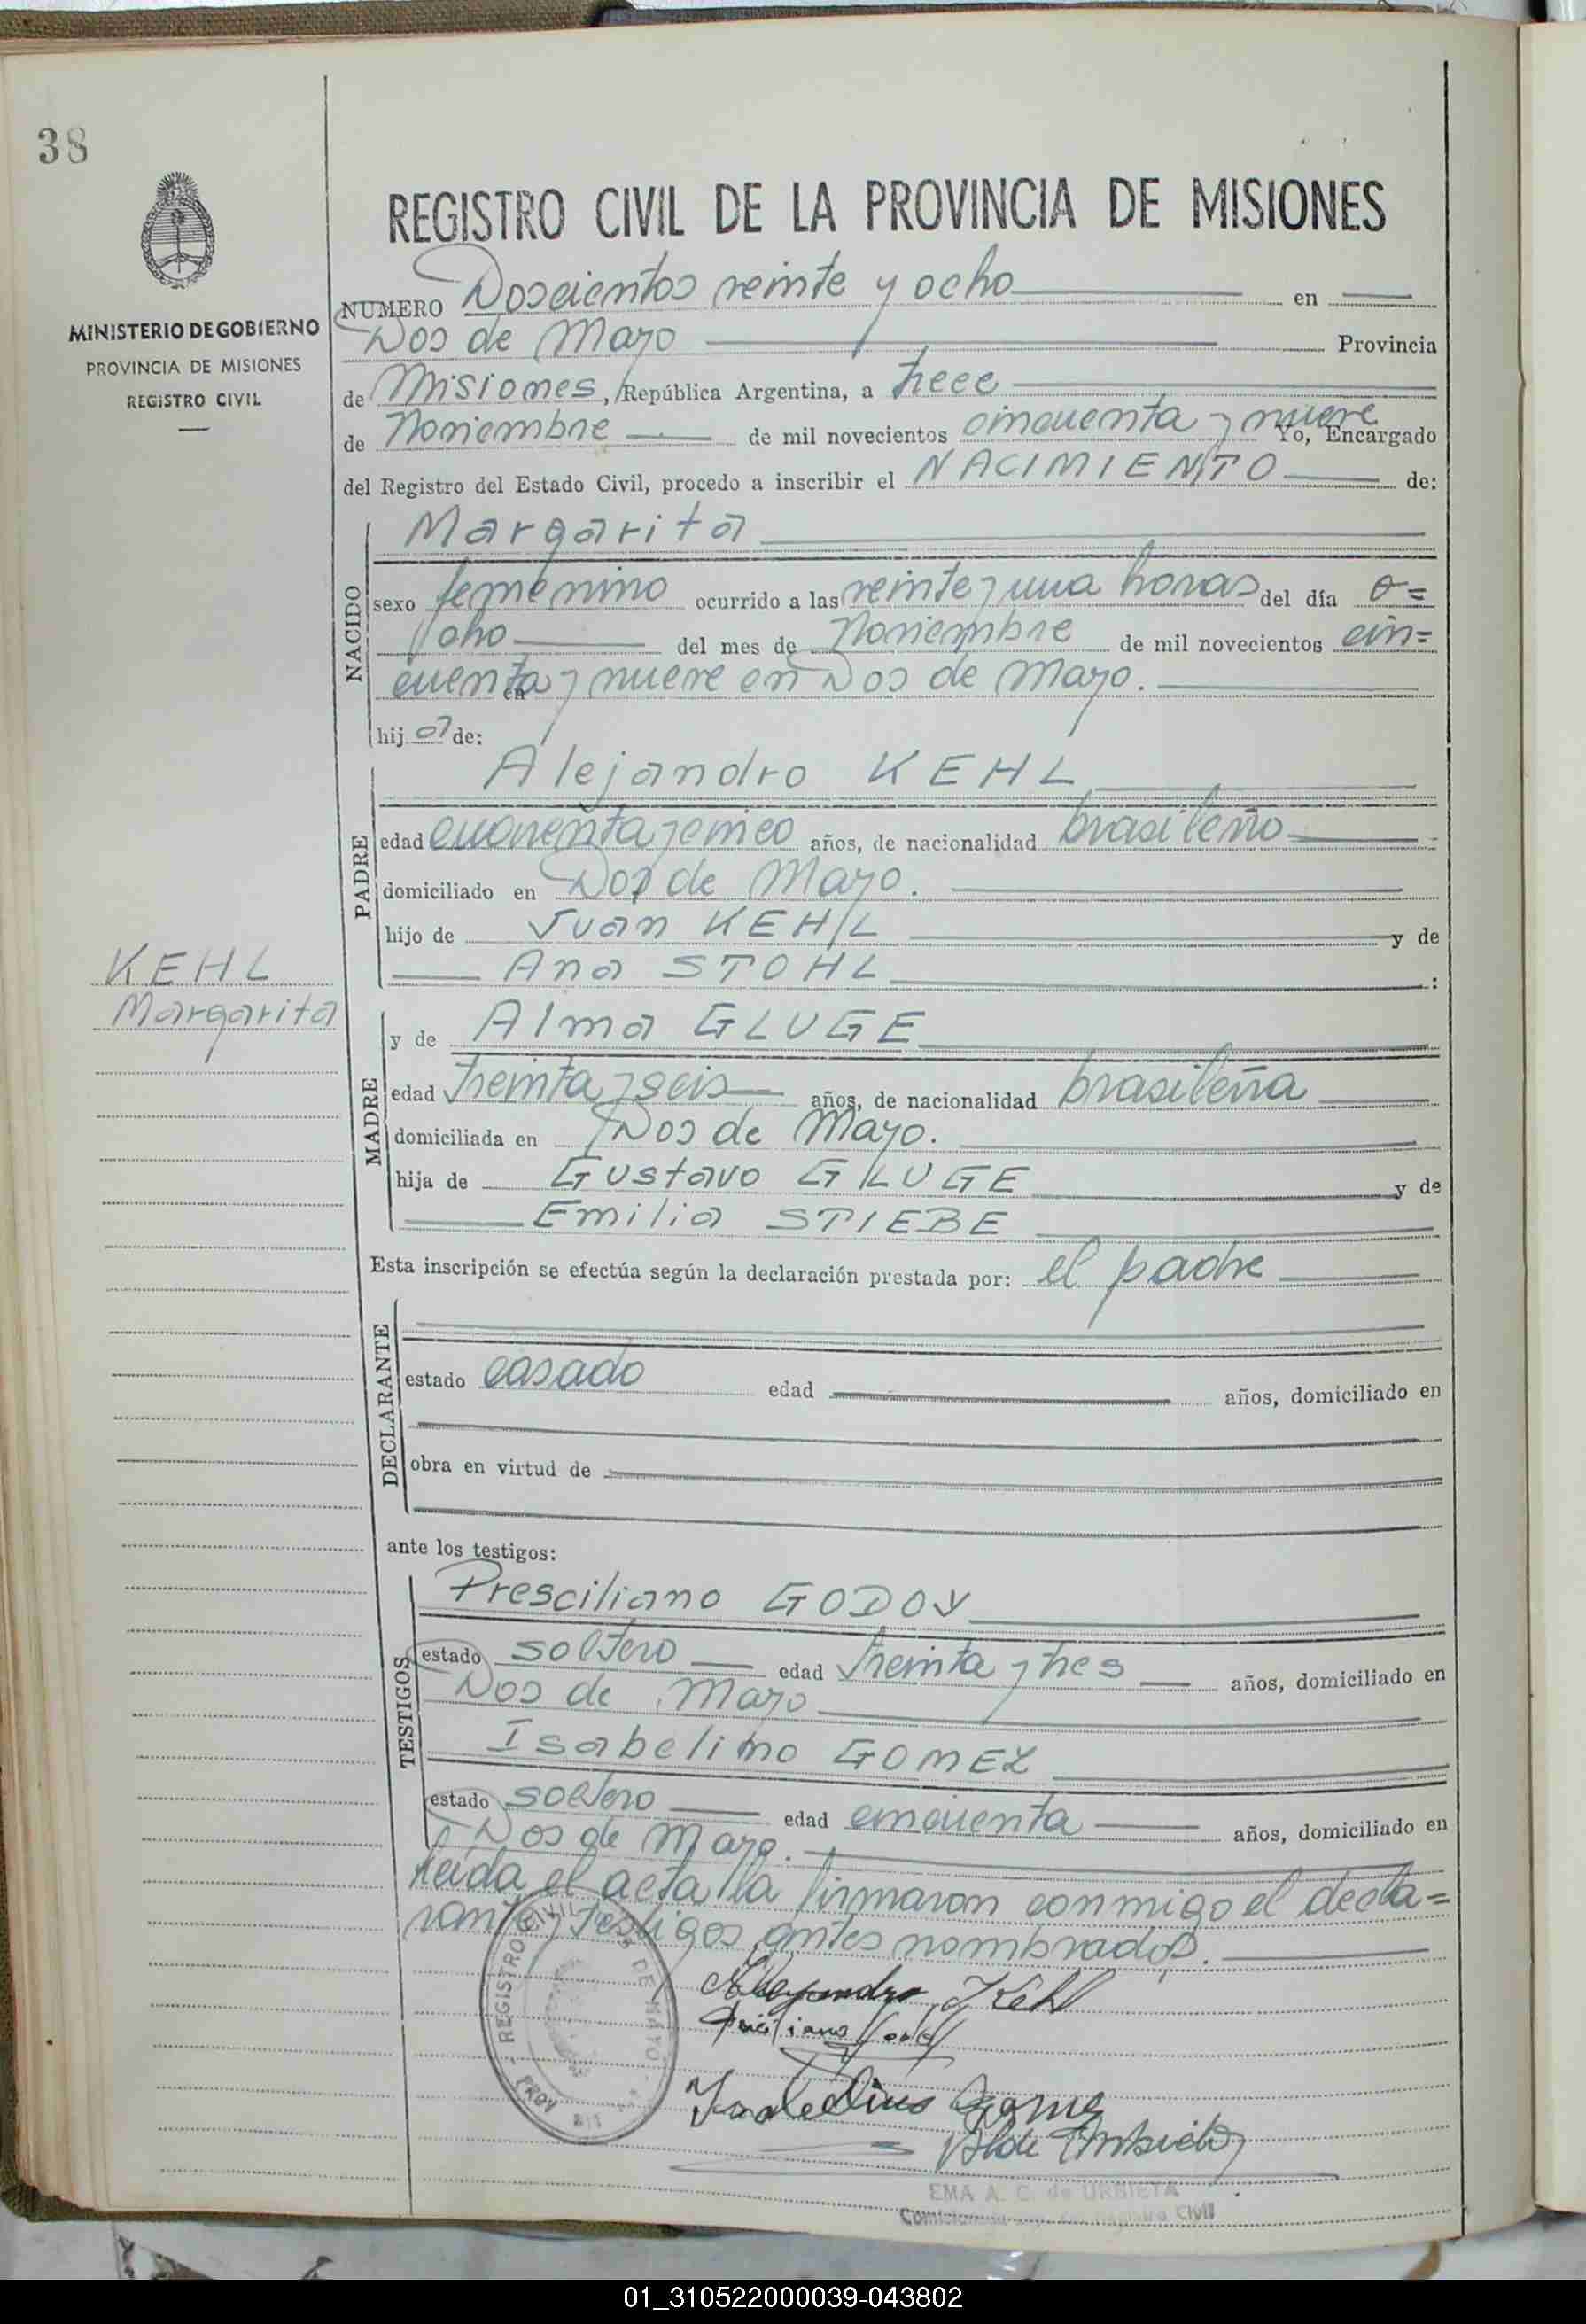 38
REGISTRO CIVIL DE LA PROVINCIA DE MISIONES
MINISTERIO DE GOBIERNO
PROVINCIA DE MISIONES
REGISTRO CIVIL
NUMERO Doscientos veinte y ocho en
Dos de Mayo Provincia
de Misiones, República Argentina, a trece
de Noviembre de mil novecientos cincuenta y nueve Yo, Encargado
del Registro del Estado Civil, procedo a inscribir el NACIMIENTO de:
NACIDO
Margarita
sexo femenino ocurrido a las veinte y una horas del día o=
cho del mes de Noviembre de mil novecientos cin=
cuenta y nueve en Dos de Mayo.
en
hija de:
PADRE
Alejandro KEHL
edad cuarenta y cinco años, de nacionalidad brasileño
domiciliado en Dos de Mayo.
hijo de Juan KEHL y de
Ana STOHL :
KEHL
Margarita
MADRE
y de Alma GLUGE
edad treinta y seis años, de nacionalidad brasileña
domiciliada en Dos de Mayo.
hija de Gustavo GLUGE y de
Emilia STIEBE
Esta inscripción se efectúa según la declaración prestada por: el padre
DECLARANTE
estado casado edad años, domiciliado en
obra en virtud de
ante los testigos:
TESTIGOS
Presciliano GODOY
estado soltero edad treinta y tres años, domiciliado en
Dos de Mayo
Isabelino GOMEZ
estado soltero edad cincuenta años, domiciliado en
Dos de Mayo.
Leída el acta la firmaron conmigo el decla=
rante y testigos antes nombrados.
REGISTRO CIVIL DOS DE MAYO PROV. MIS.
Alejandro Kehl
Isabelino Gome
EMA A. C. de URBIETA
Registro Civil
01_310522000039-043802